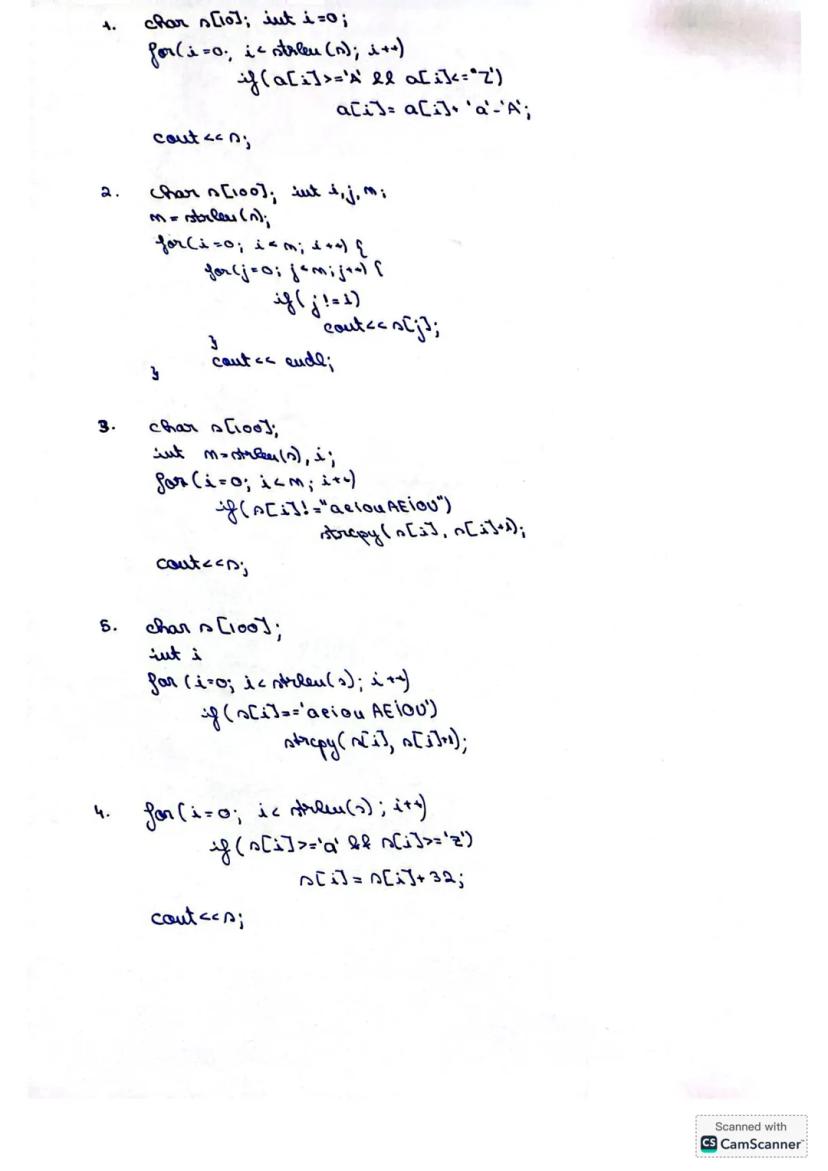 1. char s[10]; int i=0;
for(i=0; i< strlen(s); i++)
if(a[i]>='A' && a[i]<="Z')
a[i]= a[i]+ 'a'-'A';
cout<<s;
2. char s[100]; int i,j,m;
m=strlen(s);
for(i=0; i<m; i++) {
for(j=0; j<m;j++) {
if(j!=i)
cout<< s[j];
}
cout<< endl;
}
3. char s[100];
int m=strlen(s), i;
for(i=0; i<m; i++)
if(s[i]!="aeiouAEiOU")
strcpy(s[i], s[i]+1);
cout<<s;
5. char s[100];
int i
for (i=0; i<strlen(s); i++)
if(s[i]=='aeiou AEiOU')
strcpy(s[i], s[i]+1);
4. for(i=0; i< strlen(s); i++)
if(s[i]>='a' && s[i]>='z')
s[i]= s[i]+32;
cout<<s;
Scanned with
CS CamScanner